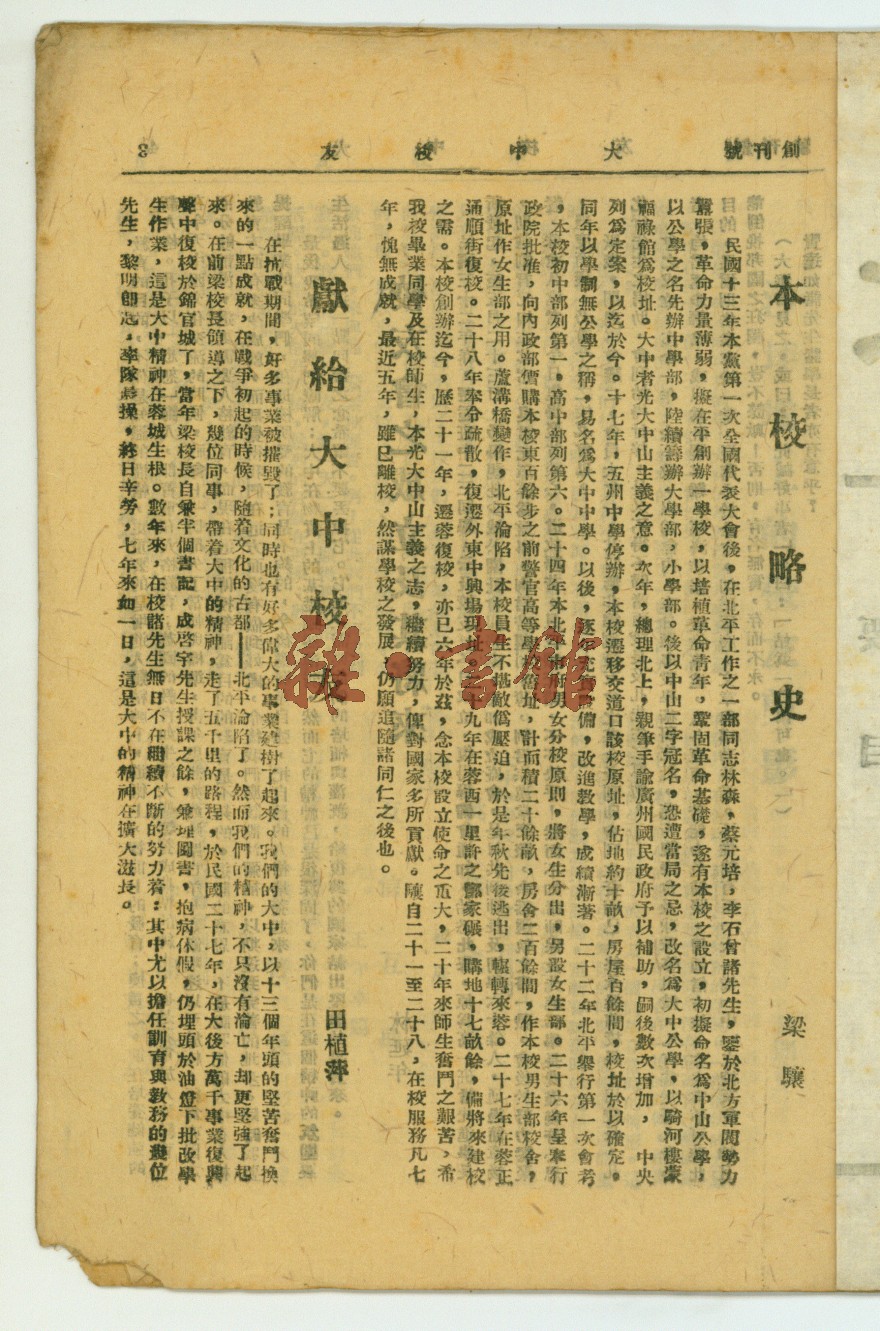 創刊號 大中校友 3
本校略史
梁驤
民國十三年本黨第一次全國代表大會後，在北平工作之一部同志林森，蔡元培，李石曾諸先生，鑒於北方軍閥勢力
囂張，革命力量薄弱，擬在平創辦一學校，以培植革命青年，鞏固革命基礎，遂有本校之設立，初擬命名為中山公學，
以公學之名先辦中學部，陸續籌辦大學部，小學部。後以中山二字冠名，恐遭當局之忌，改名為大中公學，以騎河樓蒙
福祿館為校址。大中者光大中山主義之意。次年，總理北上，親筆手諭廣州國民政府予以補助，嗣後數次增加，中央
列為定案，以迄於今。十七年，五州中學停辦，本校遷移交道口該校原址，佔地約十畝，房屋百餘間，校址於以確定。
同年以學制無公學之稱，易名為大中中學。以後，逐設備，改進教學，成績漸著。二十二年北平舉行第一次會考
，本校初中部列第一，高中部列第六。二十四年本北平市府男女分校原則，將女生分出，另設女生部。二十六年呈奉行
政院批准，向內政部價購本校東百餘步之前警官高等學校舊址，計面積二十餘畝，房舍二百餘間，作本校男生部校舍，
原址作女生部之用。蘆溝橋變作，北平淪陷，本校員生不堪敵偽壓迫，於是年秋先後逃出，輾轉來蓉。二十七年在蓉正
通順街復校。二十八年奉令疏散，復遷外東中興場現址。二十九年在蓉西一里許之鄧家碾，購地十七畝餘，備將來建校
之需。本校創辦迄今，歷二十一年，遷蓉復校，亦已六年於茲，念本校設立使命之重大，二十年來師生奮鬥之艱苦，希
我校畢業同學及在校師生，本光大中山主義之志，繼續努力，俾對國家多所貢獻。驤自二十一至二十八，在校服務凡七
年，愧無成就，最近五年，雖已離校，然謀學校之發展，仍願追隨諸同仁之後也。
獻給大中校友
田植萍
在抗戰期間，好多事業被摧毀了；同時也有好多偉大的事業建樹了起來。我們的大中，以十三個年頭的堅苦奮鬥換
來的一點成就，在戰爭初起的時候，隨着文化的古都——北平淪陷了。然而我們的精神，不只沒有淪亡，却更堅強了起
來。在前梁校長領導之下，幾位同事，帶着大中的精神，走了五千里的路程，於民國二十七年，在大後方萬千事業復興
聲中復校於錦官城了，當年梁校長自兼半個書記，成啓宇先生授課之餘，兼理圖書，抱病休假，仍埋頭於油燈下批改學
生作業，這是大中精神在蓉城生根。數年來，在校諸先生無日不在繼續不斷的努力着：其中尤以擔任訓育與教務的幾位
先生，黎明即起，率隊晨操，終日辛勞，七年來如一日，這是大中的精神在擴大滋長。
雜·書館